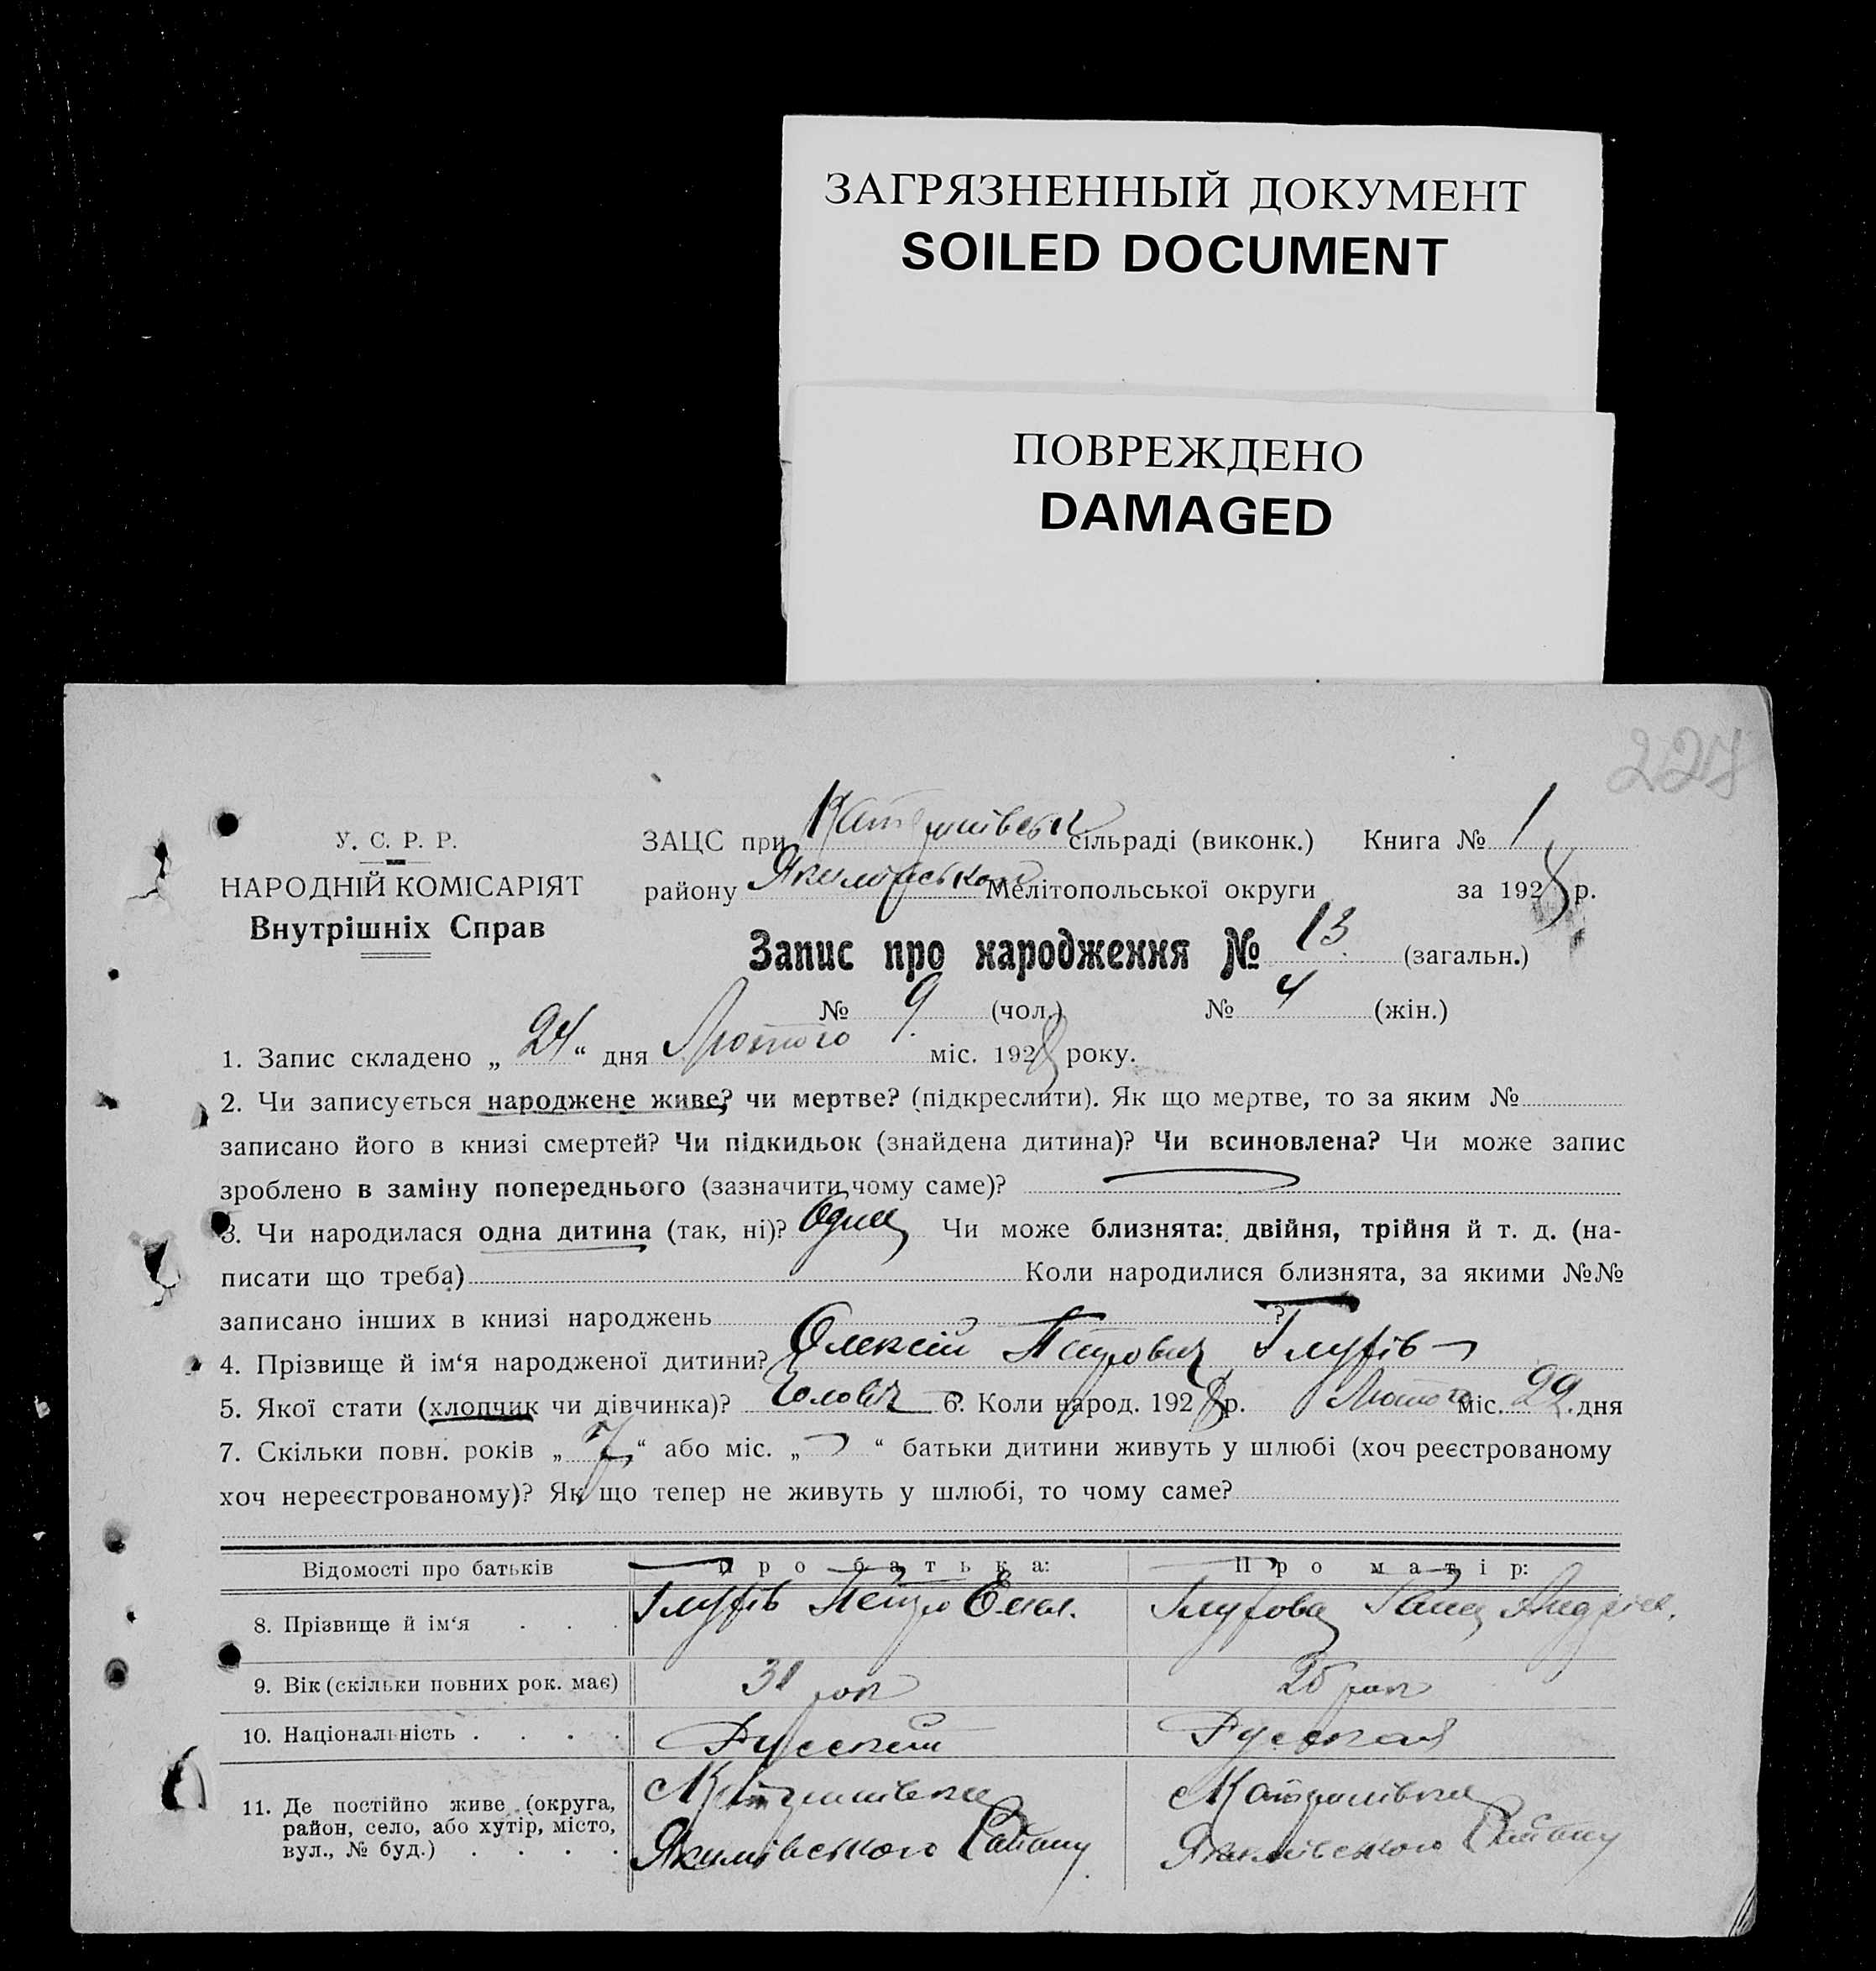 ЗАГРЯЗНЕННЫЙ ДОКУМЕНТ
SOILED DOCUMENT
ПОВРЕЖДЕНО
DAMAGED
227
У. С. Р. Р.
НАРОДНІЙ КОМІСАРІЯТ
Внутрішніх Справ
ЗАЦС при сільраді (виконк.) Книга № 1
району Мелітопольської округи за 1928 р.
Запис про народження № 13 (загальн.)
№ 9 (чол.) № 4 (жін.)
1. Запис складено „ 24 “ дня Лютого міс. 1928 року.
2. Чи записується народжене живе? чи мертве? (підкреслити). Як що мертве, то за яким №
записано його в книзі смертей? Чи підкидьок (знайдена дитина)? Чи всиновлена? Чи може запис
зроблено в заміну попереднього (зазначити чому саме)?
3. Чи народилася одна дитина (так, ні)? Одна Чи може близнята: двійня, трійня й т. д. (на-
писати що треба) Коли народилися близнята, за якими №№
записано інших в книзі народжень ?
4. Прізвище й ім‘я народженої дитини? Олексій Петрович
5. Якої стати (хлопчик чи дівчинка)? Чоловіч 6. Коли народ. 1928 р. Лютого міс. 22 дня
7. Скільки повн. років „ 7 “ або міс. „ “ батьки дитини живуть у шлюбі (хоч реєстрованому
хоч нереєстрованому)? Як що тепер не живуть у шлюбі, то чому саме?
Відомості про батьків Про батька: Про матір:
8. Прізвище й ім‘я Петро Ганна Андріев.
9. Вік (скільки повних рок. має) рок рок
10. Національність Русский Русская
11. Де постійно живе (округа,
район, село, або хутір, місто,
вул., № буд.)
Якимівського Району Якимівського Району